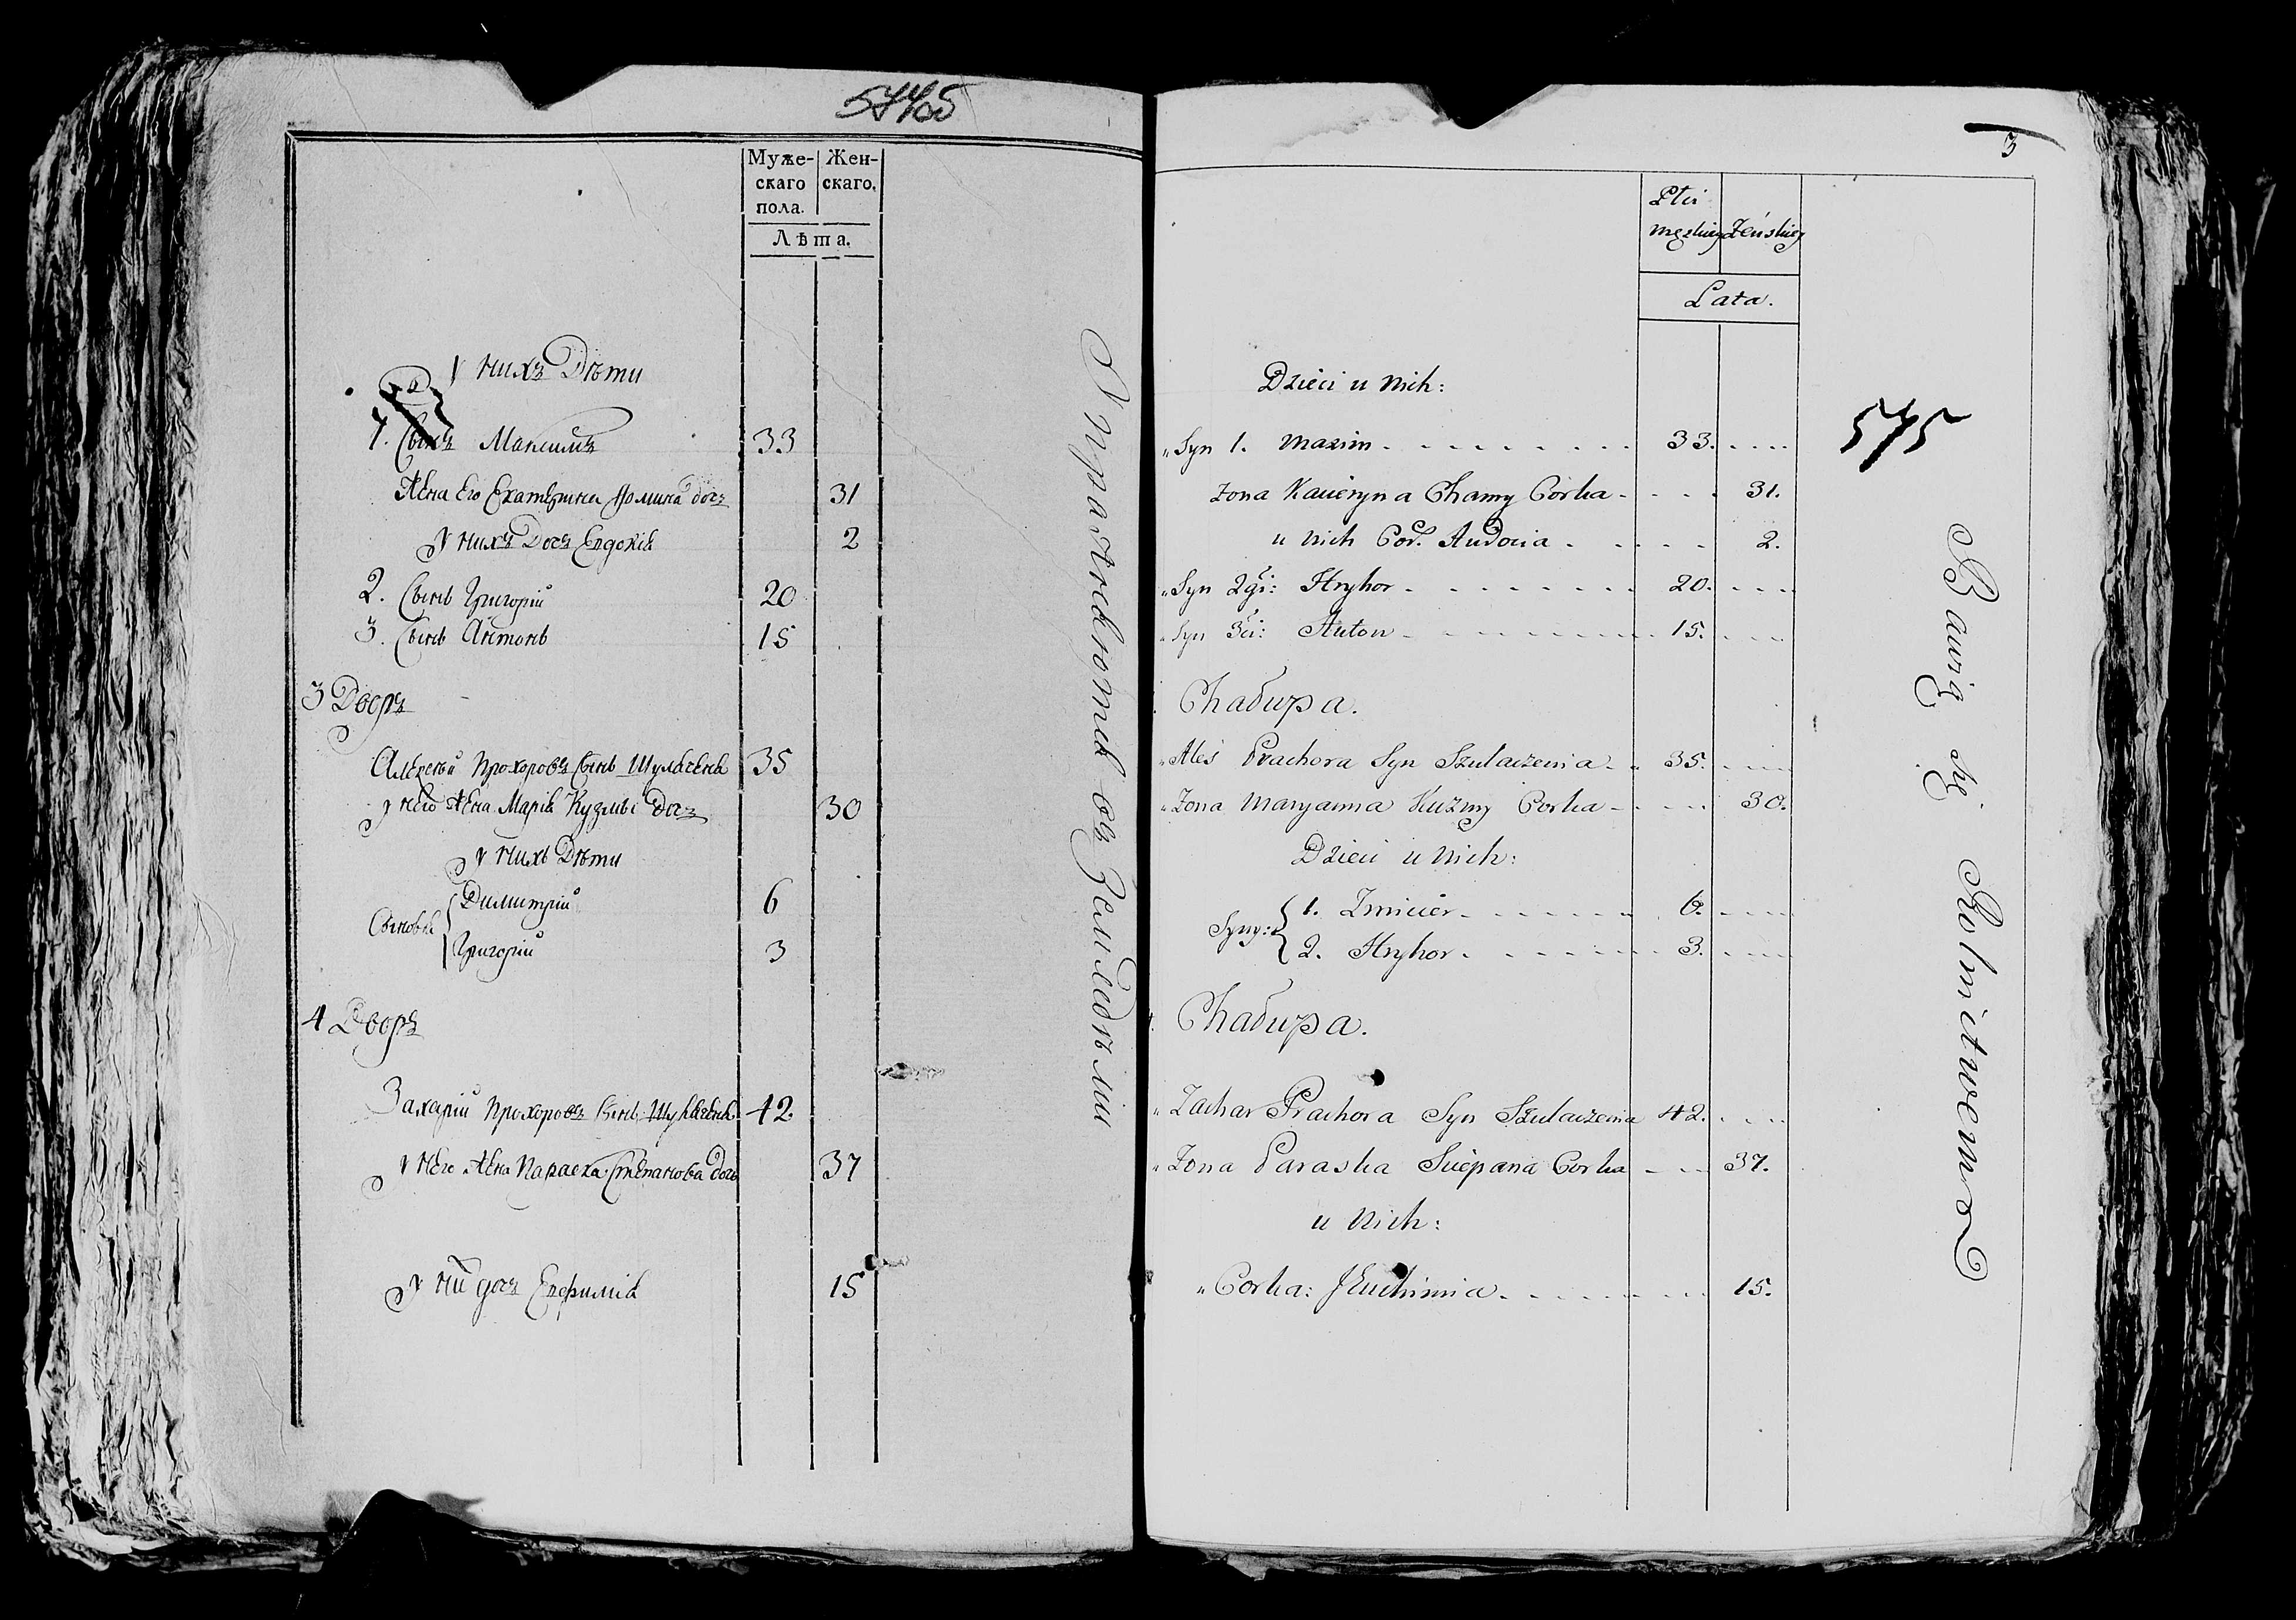 575
Муже-
скаго
пола.
Жен-
скаго.
Лѣта.
У нихъ Дѣти
1. Сынъ Максимъ 33
Жена Его Екатерина Фомина дочь 31
У нихъ Дочь Евдокія 2
2. Сынъ Григорій 20
3. Сынъ Антонъ 15
3 Дворъ
Алексѣй Прохоровъ Сынъ Шулаченя 35
у него Жена Марія Кузмы дочь 30
у нихъ Дѣти
Сыновья
Димитрій 6
Григорій 3
4 Дворъ
Захарій Прохоровъ Сынъ Шулаченя 42
у него Жена Параска Степанова дочь 37
у нихъ дочь Евфимія 15
Упражняются въ Земледѣліи
3
Płci
męzkiej
Żeńskiej
Lata.
Dzieci u nich:
575
Syn 1. Maxim 33.
Zona Kacieryna Chamy Corka 31.
u nich Cor. Audocia 2.
Syn 2gi: Hryhor 20.
Syn 3ci: Anton 15.
Chałupa.
Aleś Prachora Syn Szulaczenia 35.
Zona Maryanna Kuzmy Corka 30.
Dzieci u nich:
Syny:
1. Zmicier 6.
2. Hryhor 3.
Chałupa.
Zachar Prachora Syn Szulaczenia 42.
Zona Paraska Sciepana Corka 37.
u nich:
Corka: Jeuchimia 15.
Bawią się Rolnictwem